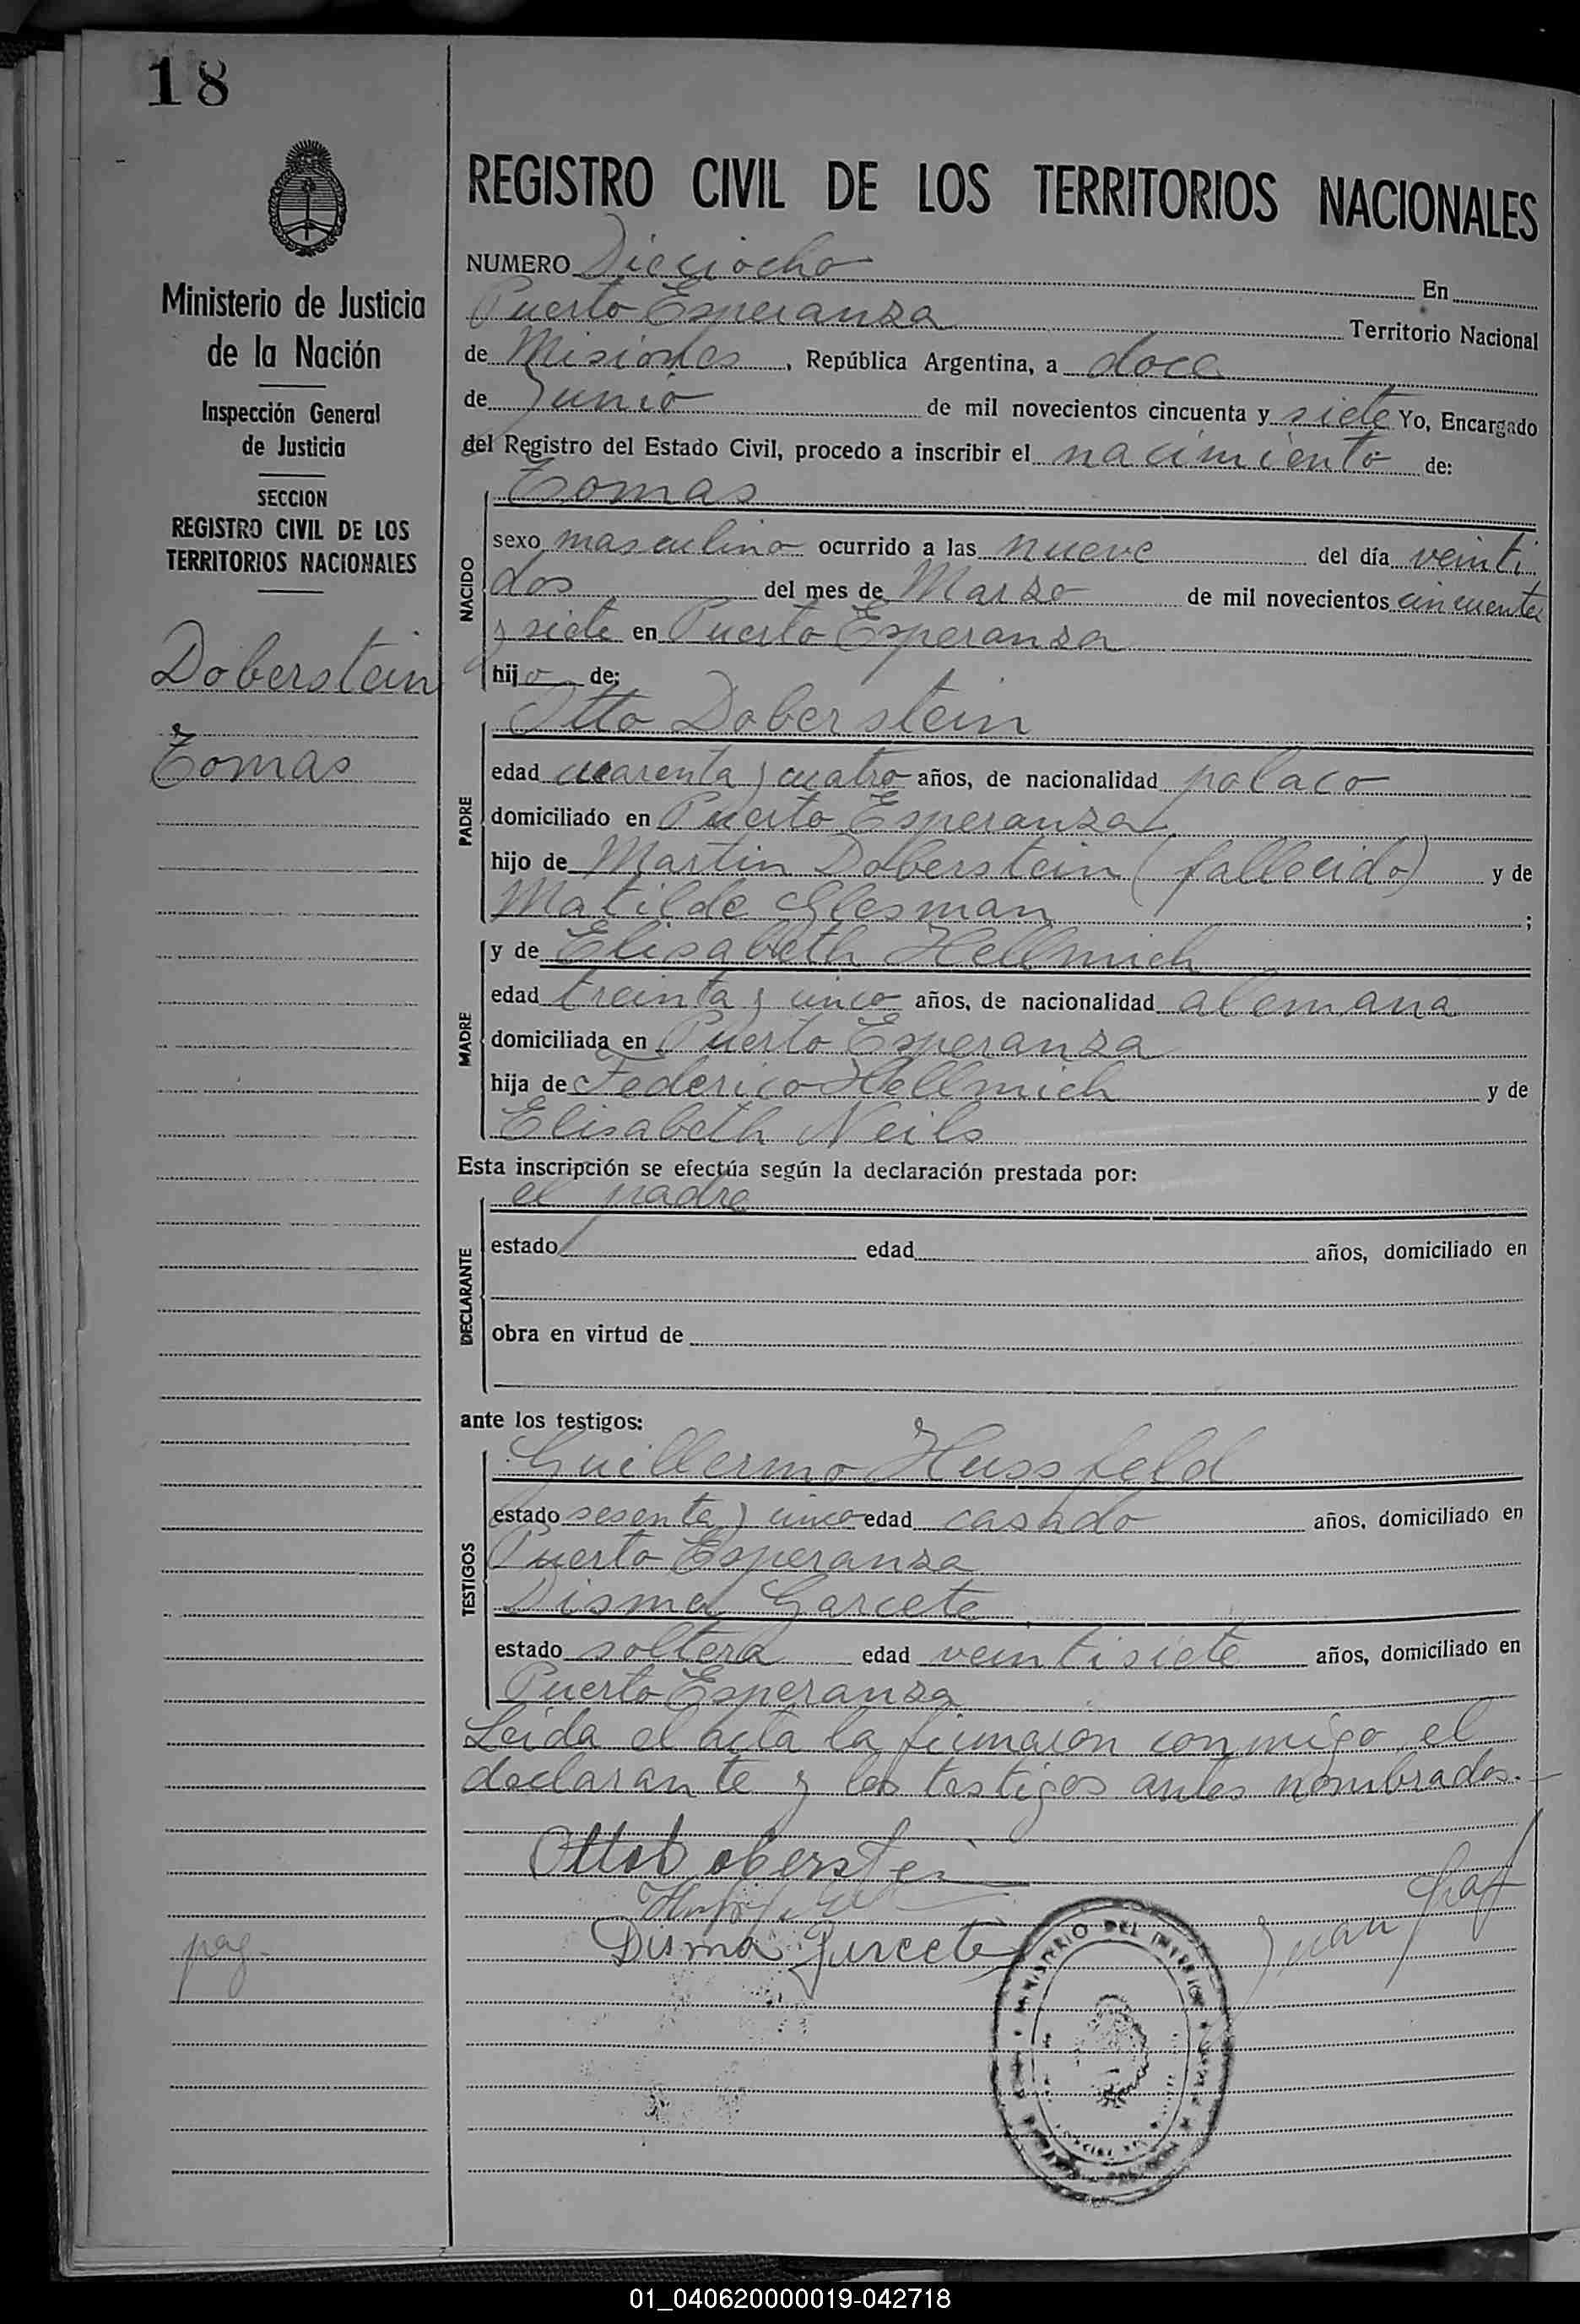 18
Ministerio de Justicia
de la Nación
Inspección General
de Justicia
SECCION
REGISTRO CIVIL DE LOS
TERRITORIOS NACIONALES
Doberstein
Tomas
pag.
REGISTRO CIVIL DE LOS TERRITORIOS NACIONALES
NUMERO Dieciocho En
Puerto Esperanza Territorio Nacional
de Misiones, República Argentina, a doce
de Junio de mil novecientos cincuenta y siete Yo, Encargado
del Registro del Estado Civil, procedo a inscribir el nacimiento de:
Tomas
NACIDO
sexo masculino ocurrido a las nueve del día veinti
dos del mes de Marzo de mil novecientos cincuenta
y siete en Puerto Esperanza
hijo de:
Otto Doberstein
PADRE
edad cuarenta y cuatro años, de nacionalidad polaco
domiciliado en Puerto Esperanza
hijo de Martin Doberstein (fallecido) y de
Matilde Glesman ;
y de Elisabeth Hellmich
MADRE
edad treinta y cinco años, de nacionalidad alemana
domiciliada en Puerto Esperanza
hija de Federico Hellmich y de
Elisabeth Neils
Esta inscripción se efectúa según la declaración prestada por:
el padre
DECLARANTE
estado edad años, domiciliado en
obra en virtud de
ante los testigos:
Guillermo Hussfeld
TESTIGOS
estado sesenta y cinco edad casado años, domiciliado en
Puerto Esperanza
Disma Garcete
estado soltera edad veintisiete años, domiciliado en
Puerto Esperanza
Leida el acta la firmaron conmigo el
declarante y los testigos antes nombrados.
Otto Doberstein
Disma Garcete
Juan Graf
MINISTERIO DEL INTERIOR
01_040620000019-042718